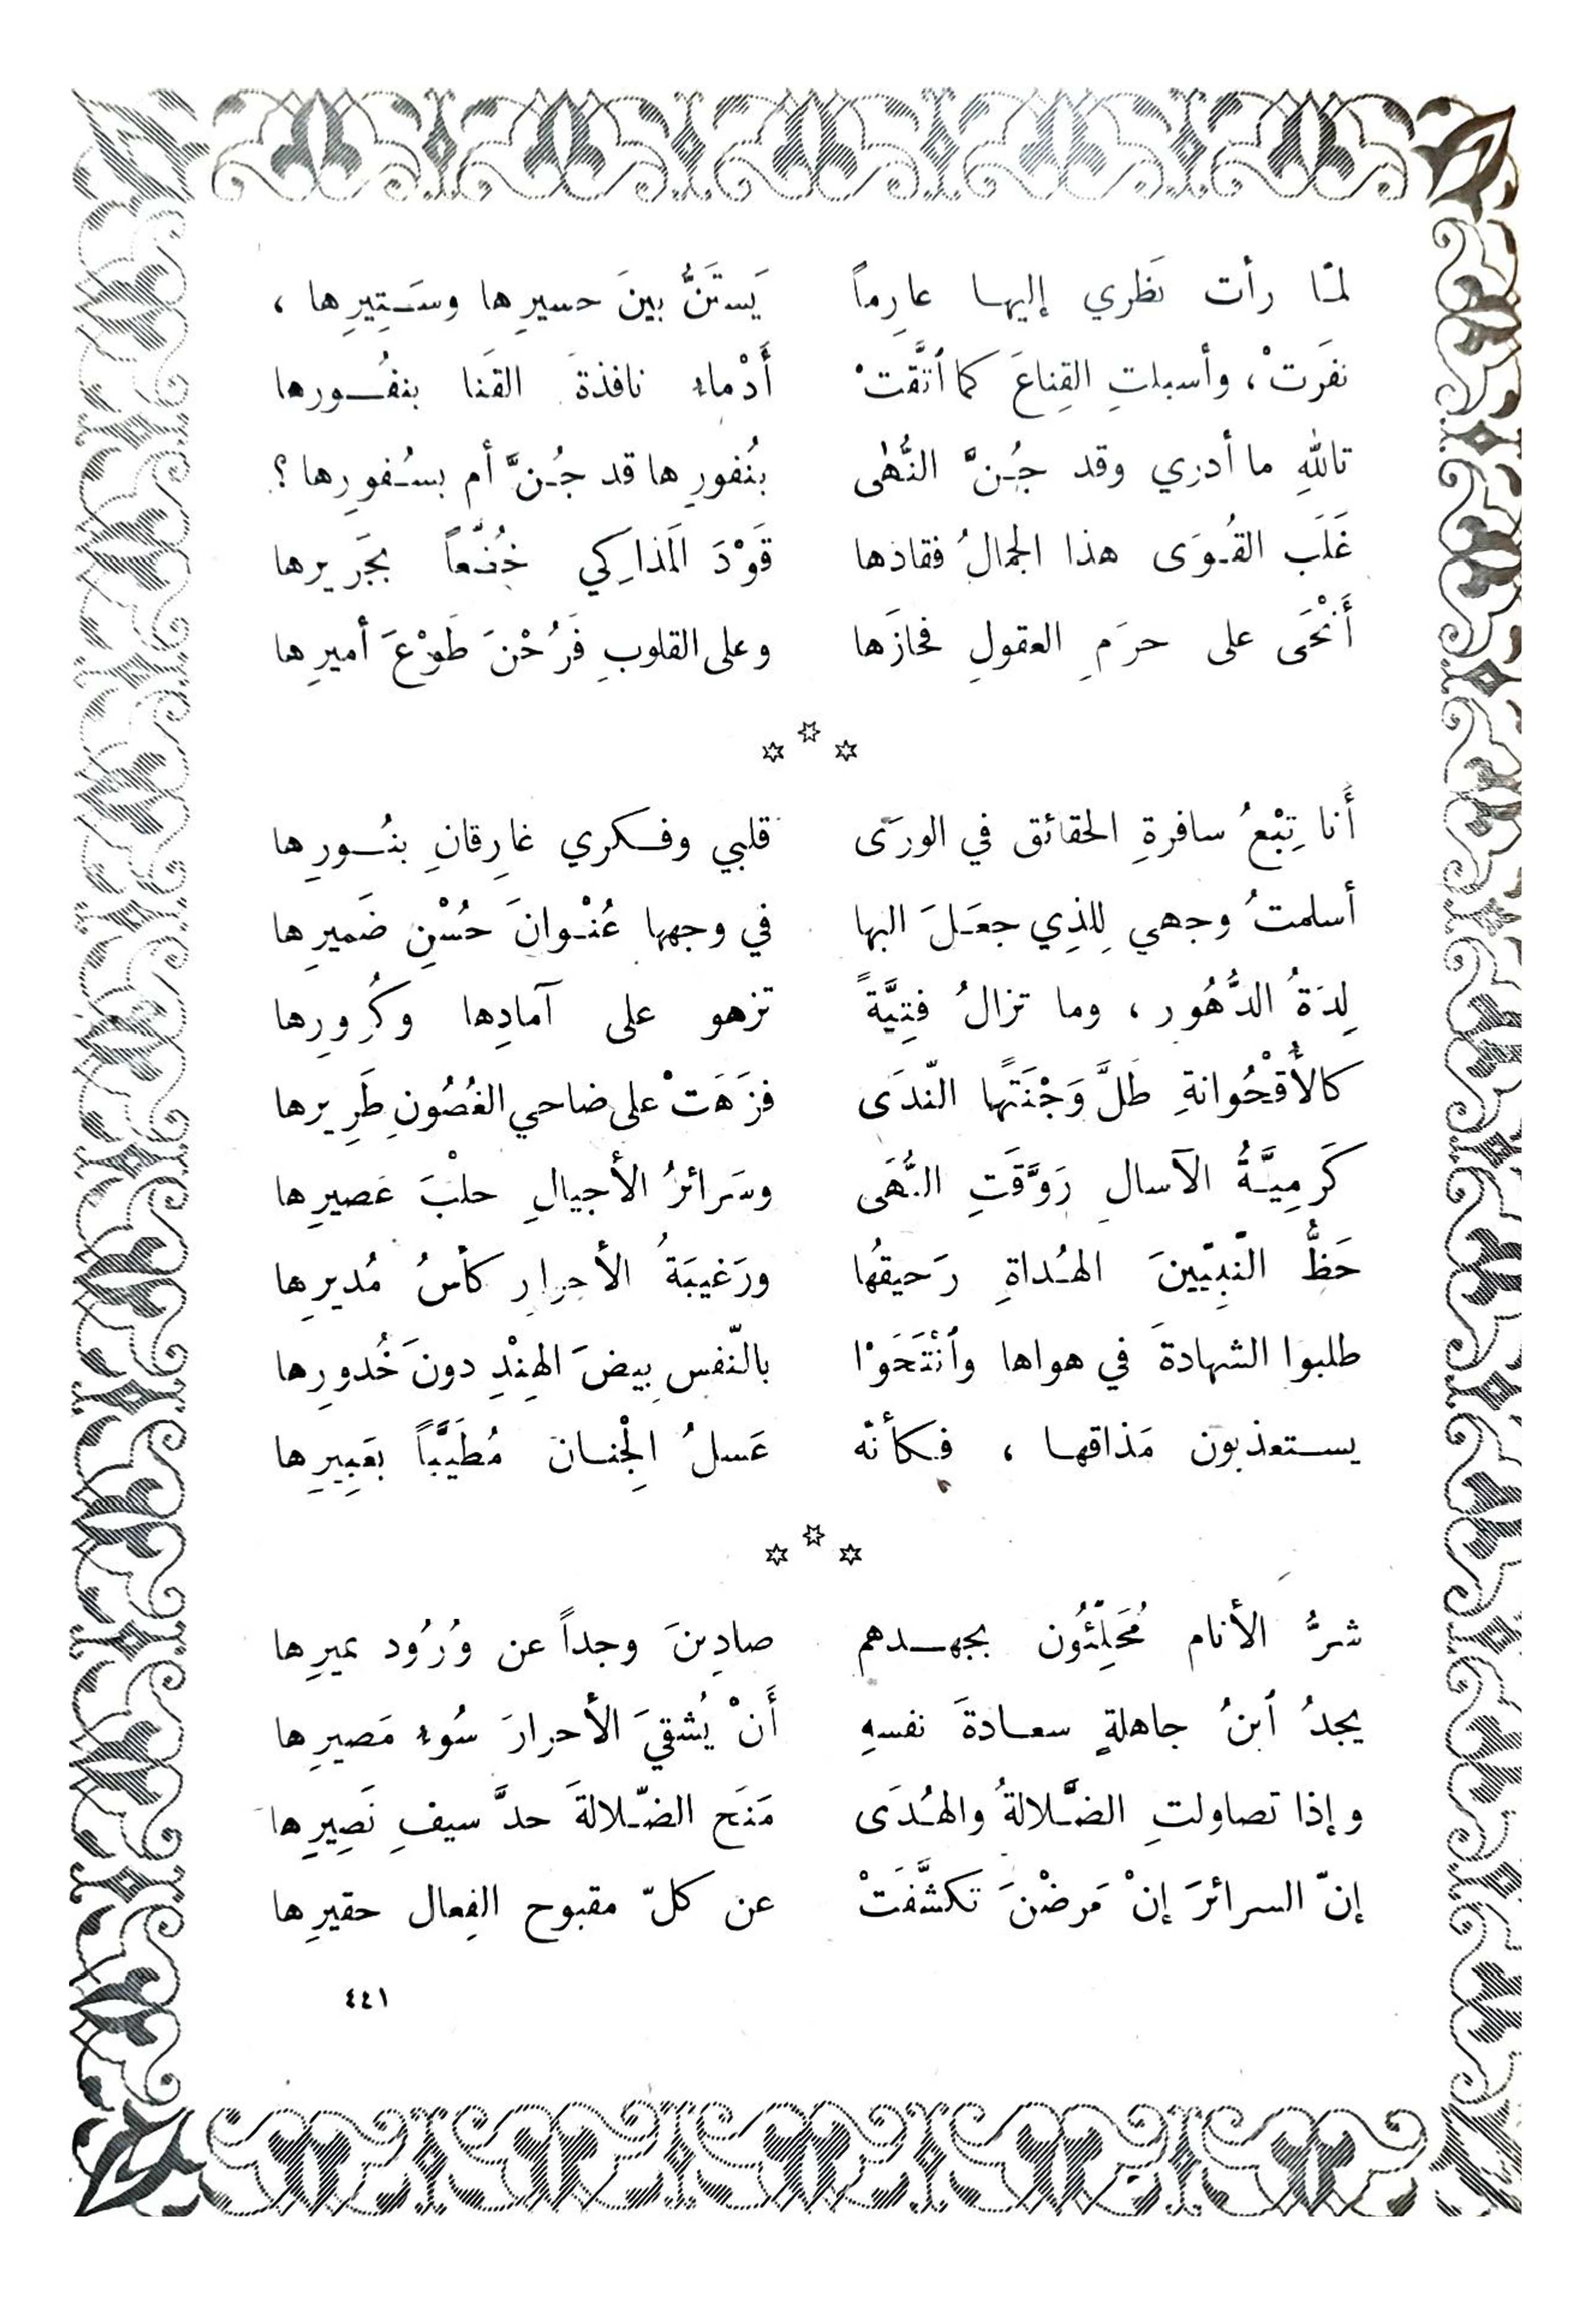 لمّا رأت نَظري إليها عارِماً يَستَنُّ بينَ حسيرِها وسَتِيرِها ،
نفَرتْ ، وأسبلتِ القِناعَ كما ٱتَّقَتْ أَدْماء نافذةَ القَنا بنفُورها
تاللهِ ما أدري وقد جُنَّ النُّهٰى بنُفورِها قد جُنَّ أم بسُفورِها ؟
غَلَب القُوَى هذا الجمالُ فقادَها قَوْدَ المَذاكِي خُضَّعاً بجَريرها
أَنْحَى على حرَمِ العقولِ فحازَها وعلى القلوبِ فَرُحْنَ طَوْعَ أميرِها
* * *
أَنا تِبْعُ سافرةِ الحقائق في الورَى قلبي وفكري غارِقانِ بنُورِها
أسلمتُ وجهي لِلذِي جعَلَ البها في وجهها عُنْوانَ حُسْنِ ضَميرِها
لِدَةُ الدُّهُور ، وما تزالُ فتِيَّةً تزهو على آمادِها وكُرورِها
كالأُقْحُوانةِ طَلَّ وَجْنَتَها النّدَى فزَهَتْ على ضاحي الغُصُونِ طَرِيرها
كَرمِيَّةُ الآسالِ رَوَّقَتِ النُّهَى وسَرائرُ الأجيالِ حلْبَ عَصيرِها
حَظُّ النّبيّينَ الهُداةِ رَحيقُها ورَغيبَةُ الأحرارِ كأسُ مُديرِها
طلبوا الشهادةَ في هواها وٱنْتَحَوْا بالنّفسِ بيضَ الهِنْدِ دونَ خُدورِها
يستعذبون مَذاقها ، فكأنّه عَسلُ الْجِنان مُطَيَّباً بعَبِيرِها
* * *
شرُّ الأنام مُحَلِّئُون بجهدهم صادِينَ وجداً عن وُرُود نميرِها
يجدُ ٱبنُ جاهلةٍ سعادةَ نفسهِ أَنْ يُشقيَ الأحرارَ سُوء مَصيرِها
وإذا تصاولتِ الضَّلالةُ والهُدَى مَنَح الضّلالةَ حدَّ سيفِ نَصِيرِها
إنّ السرائرَ إنْ مَرضْنَ تكشَّفَتْ عن كلّ مقبوح الفِعال حقيرِها
٤٤١